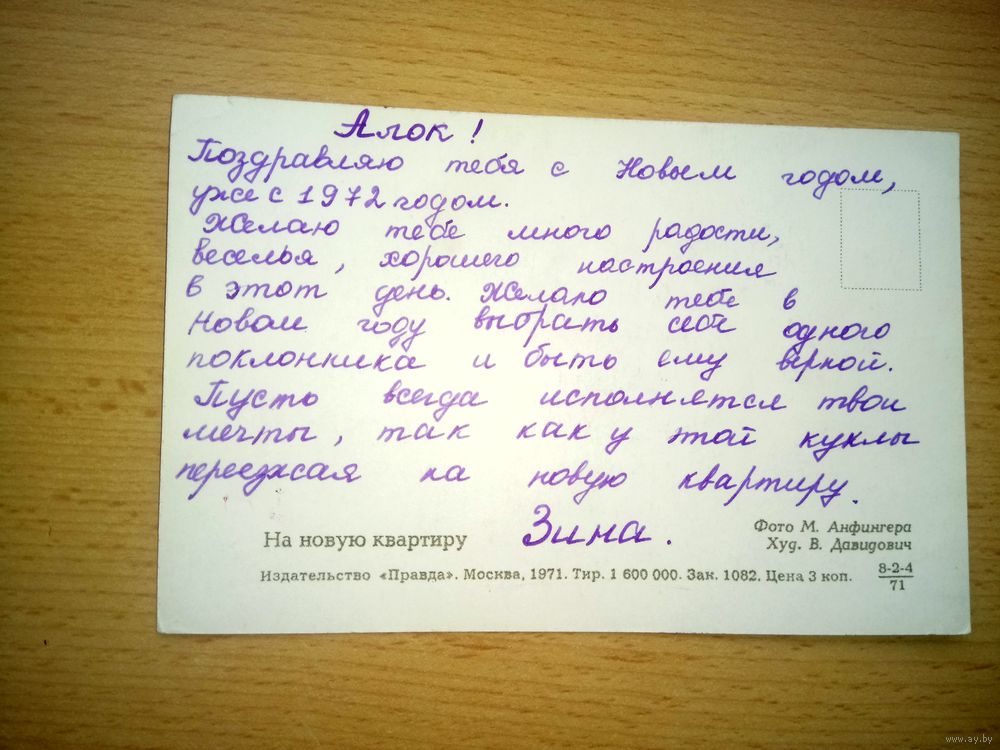 Алок!
Поздравляю тебя с Новым годом,
уже с 1972 годом.
Желаю тебе много радости,
веселья, хорошего настроения
в этот день. Желаю тебе в
Новом году выбрать себе одного
поклонника и быть ему верной.
Пусть всегда исполнятся твои
мечты, так как у этой куклы
переезжая на новую квартиру.
Зина.
На новую квартиру
Фото М. Анфингера
Худ. В. Давидович
Издательство «Правда». Москва, 1971. Тир. 1 600 000. Зак. 1082. Цена 3 коп.
8-2-4
71
www.ay.by